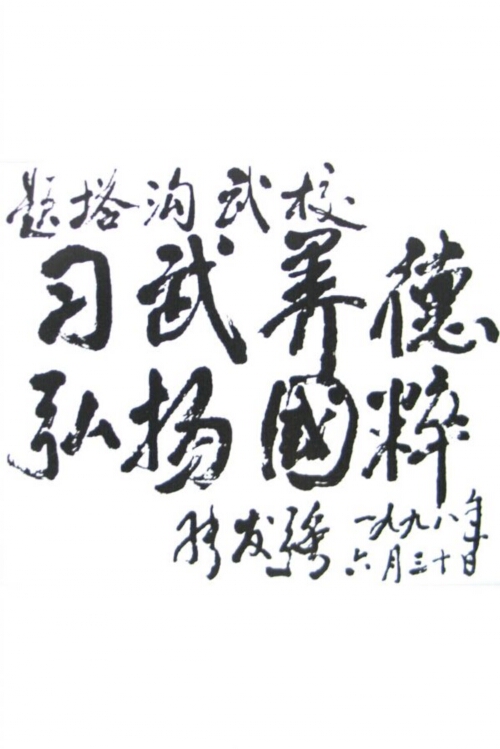 题塔沟武校
习武养德
弘扬國粹
一九九八年
六月三十日